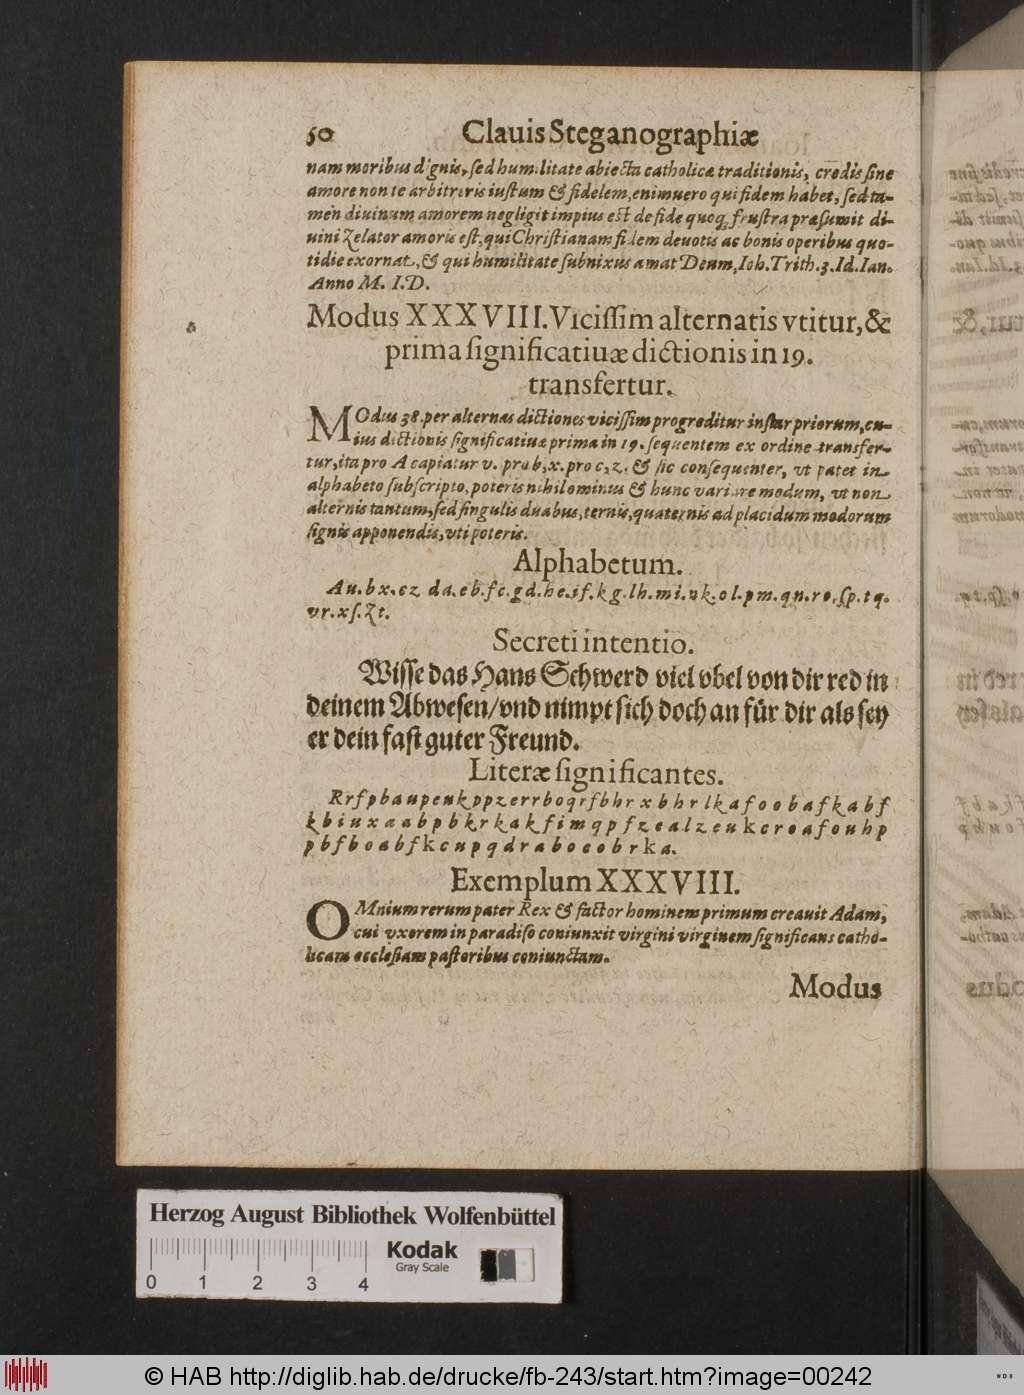 50 Clauis Steganographiæ
nam moribus dignis, sed humilitate abiecta catholicæ traditionis, credis sine
amore non te arbitreris iustum & fidelem, enimuero qui fidem habet, sed ta-
men diuinum amorem negligit impius est de fide quoq; frustra præsumit di-
uini Zelator amoris est, qui Christianam fidem deuotis ac bonis operibus quo-
tidie exornat, & qui humilitate subnixus amat Deum, Ioh. Trith. 3. Id. Ian.
Anno M. I.D.
Modus XXXVIII. Vicissim alternatis vtitur, &
prima significatiuæ dictionis in 19.
transfertur.
MOdus 38. per alternas dictiones vicissim progreditur instar priorum, cu-
ius dictionis significatiuæ prima in 19. sequentem ex ordine transfer-
tur, ita pro A capiatur v. pro b, x. pro c, z. & sic consequenter, vt patet in
alphabeto subscripto, poteris nihilominus & hunc variare modum, vt non
alternis tantum, sed singulis duabus, ternis, quaternis ad placidum modorum
signis apponendis, vti poteris.
Alphabetum.
Au. bx. cz da. eb. fc. gd. he. if. kg. lh. mi. nk. ol. pm. qn. ro. sp. tq.
vr. xs. Zt.
Secreti intentio.
Wisse das Hans Schwerd viel vbel von dir red in
deinem Abwesen/vnd nimpt sich doch an für dir als sey
er dein fast guter Freund.
Literæ significantes.
R r f p b a u p e n k p p z e r r b o q r f b h r x b h r l k a f o o b a f k a b f
k b i u x a a b p b k r k a k f i m q p f z e a l z e u k c r o a f o u h p
p b f b o a b f k c u p q d r a b o e o b r k a.
Exemplum XXXVIII.
OMnium rerum pater Rex & factor hominem primum creauit Adam,
cui vxorem in paradiso coniunxit virgini virginem significans catho-
licam ecclesiam pastoribus coniunctam.
Modus
Herzog August Bibliothek Wolfenbüttel
0 1 2 3 4
Kodak
Gray Scale
© HAB http://diglib.hab.de/drucke/fb-243/start.htm?image=00242